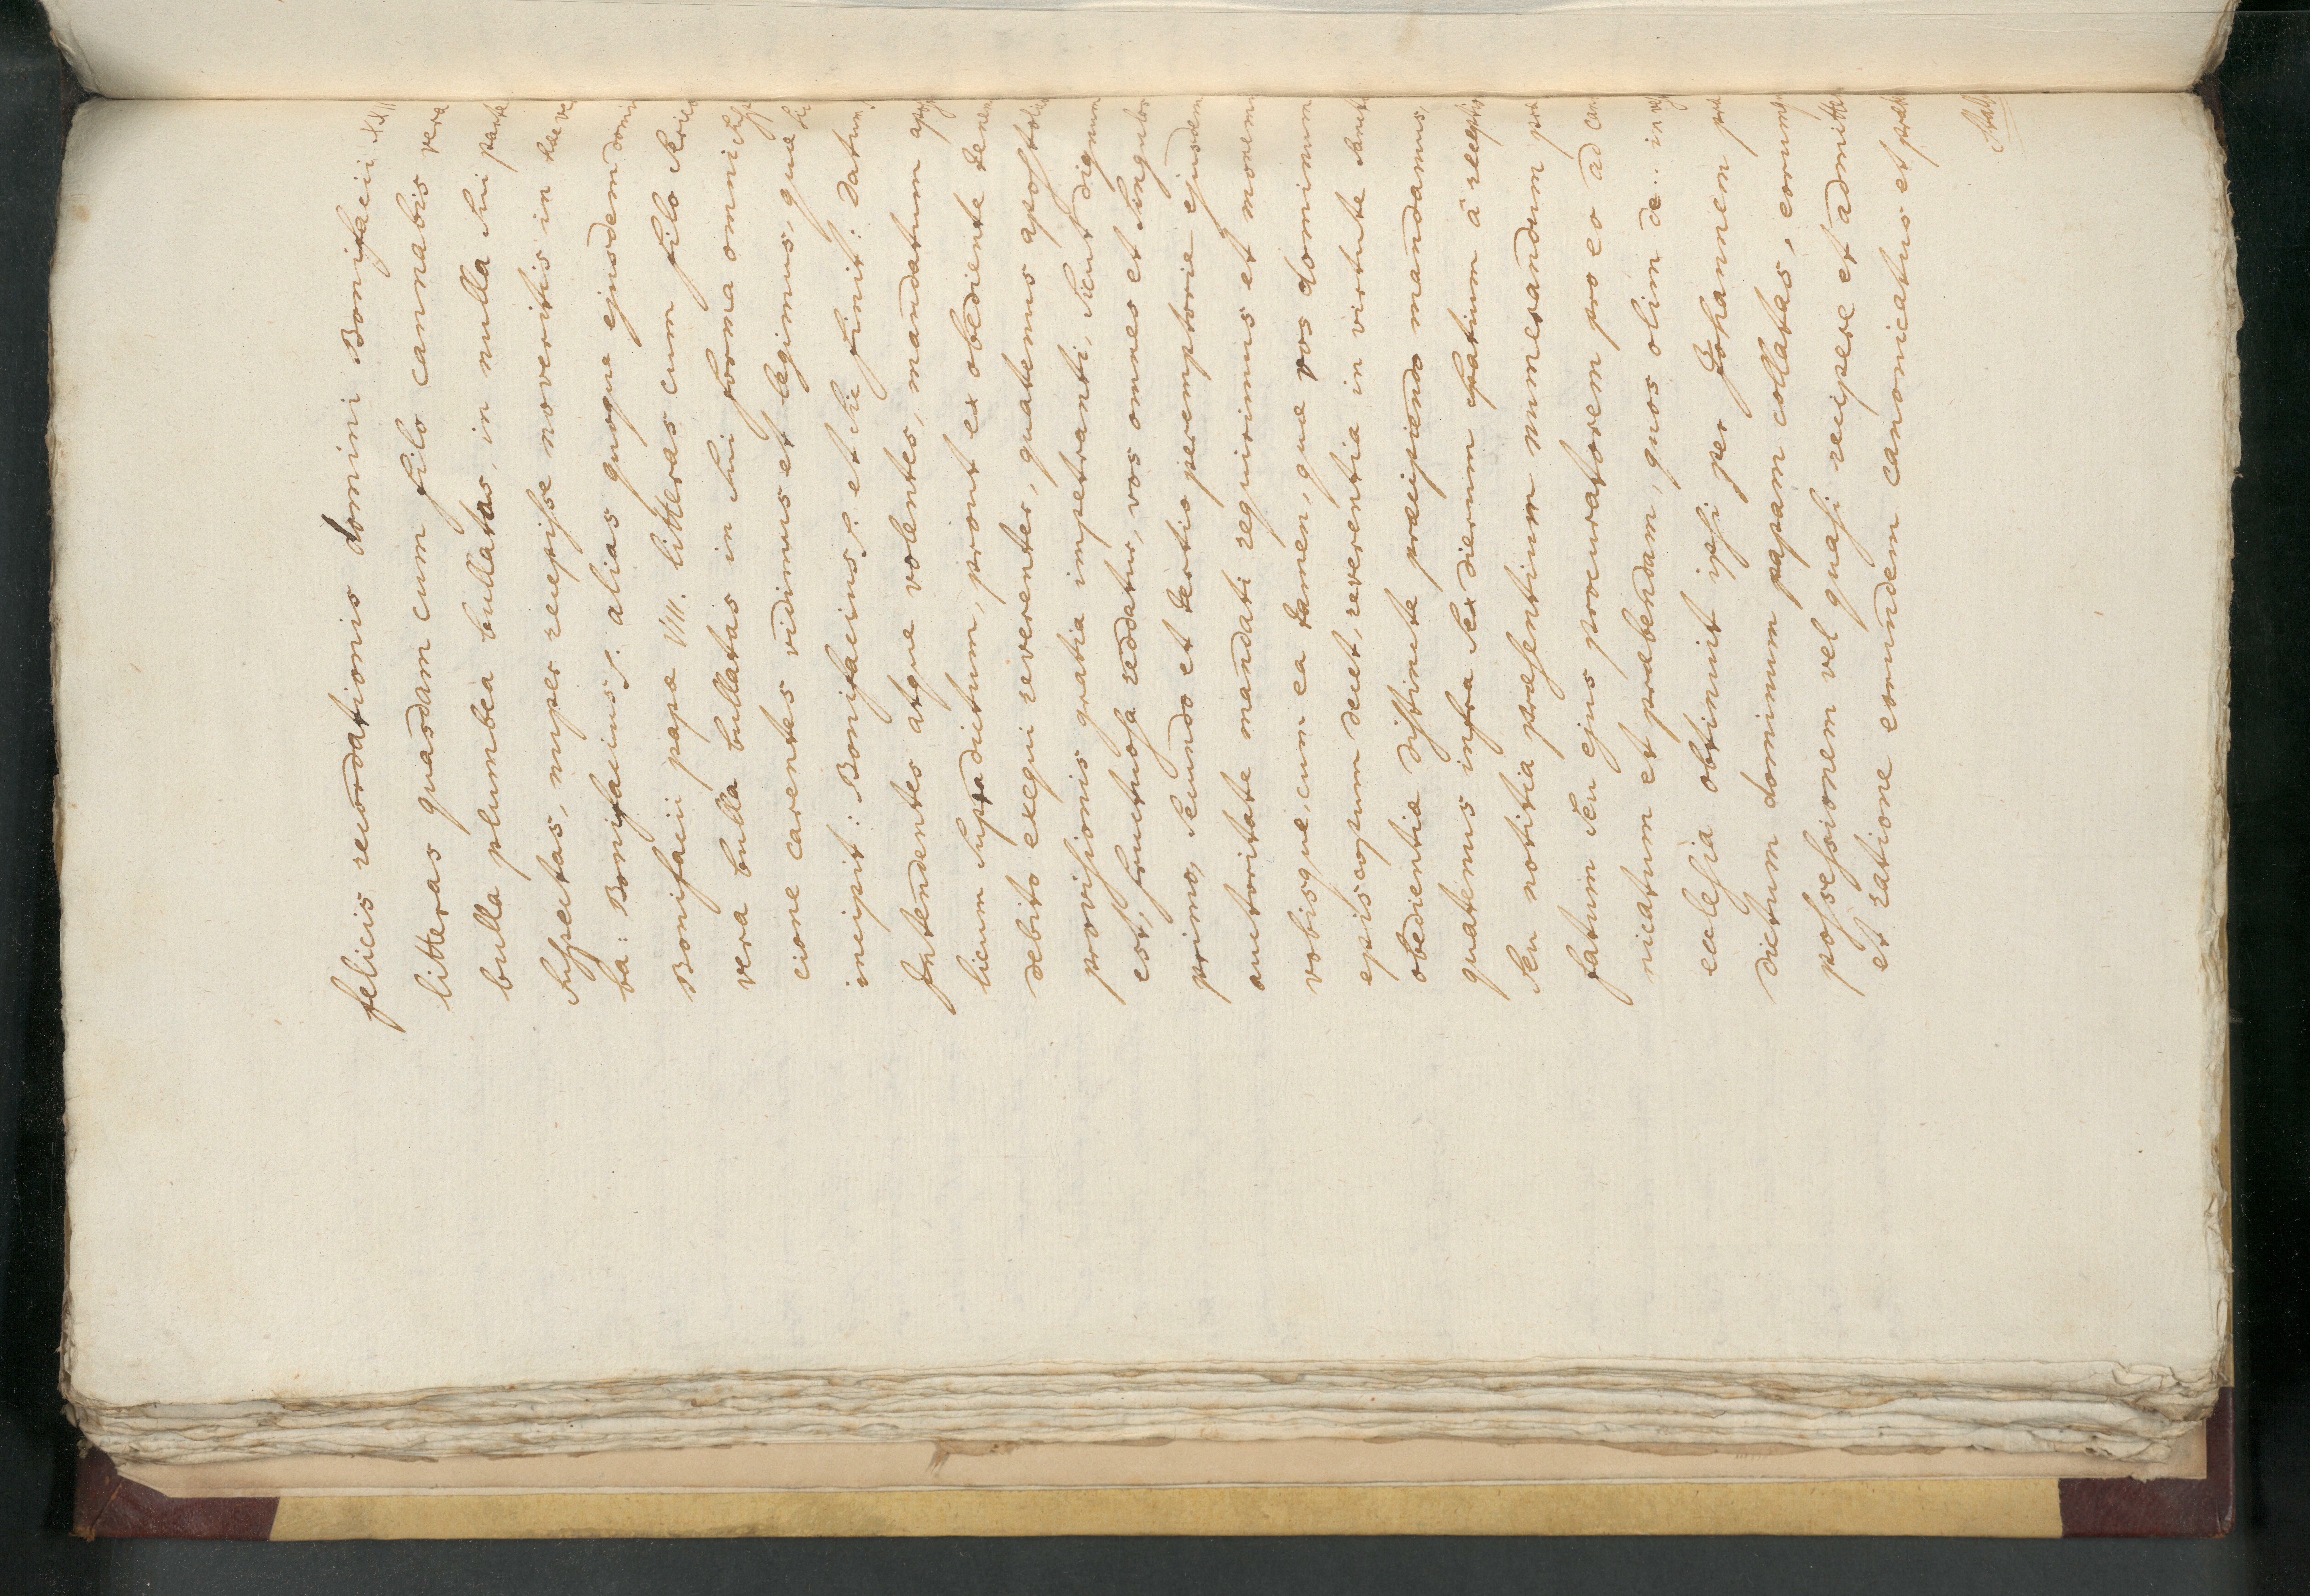 felicis recordationis domini Bonifacii
litteras quasdam cum filo cannabis vera
bulla plumbea bullatas, in nulla sui parte
suspectas, nuper recepisse noveritis in hec ver
ba: Bonifacius p. alias quoque ejusdem domi
Bonifacii pape VIII. litteras cum filo serico
vera bulla bullatas in sui forma omni suspi
cione carentes vidimus et legimus, que sic
incipit: Bonifacius p. et sic finit: Datum,
Intendentes atque volentes, mandatum aposto
licum supradictum, prout ex obediente tenem
debito exequi reverenter, quatenus apostolice
provisionis gratia impetranti, sicut dignum
est, fructuosa reddatur, vos omnes et singulos
primo, secundo et tertio peremptorie ejusdem
auctoritate mandati requirimus et monem
vobisque, cum ea tamen, que vos dominum
episcopum decet, reverentia in virtute sancte
obedientia districte præcipiendo mandamus,
quatenus infra sex dierum spatium â receptione
seu notitia præsentium numerandum pre
fatum seu ejus procuratorem pro eo ad cano
nicatum et præbendam, quos olim de .. in
ecclesia obtinuit ipsi per Johannem pre
dictum dominum papam collatas, eorumque
possessionem vel quasi recipere et admittere
et ratione eorundem canonicatus et preben